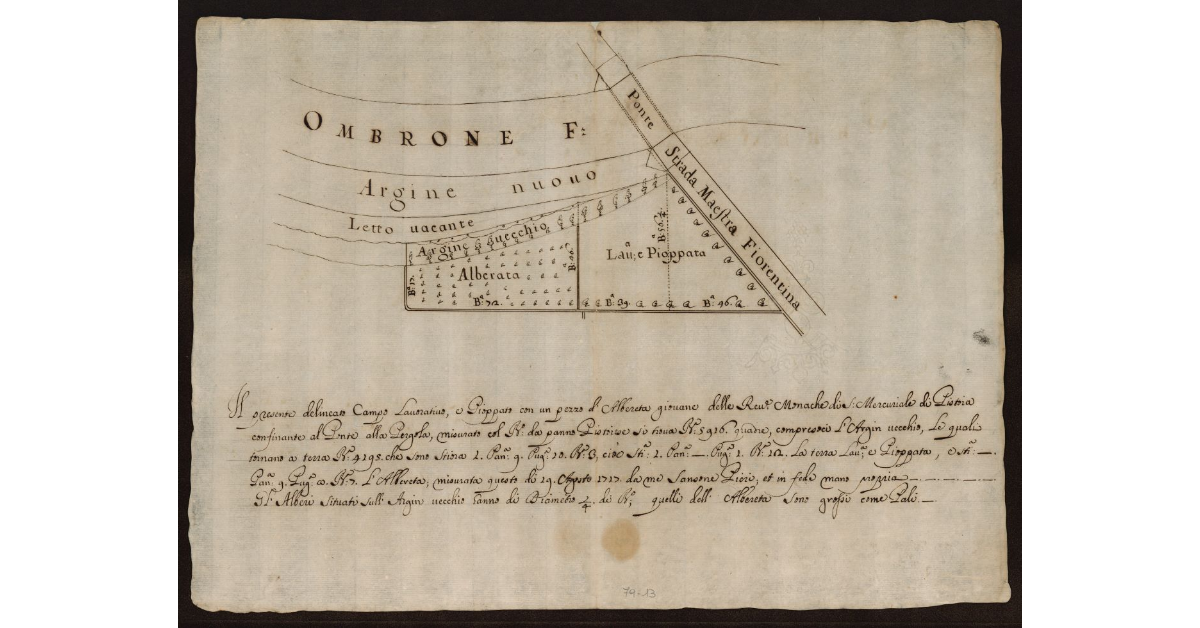 OMBRONE F:
Ponte
Strada Maestra Fiorentina
Argine nuouo
Letto uacante
Argine uecchio
Alberata
Lau:ª e Pioppata
Bª 72.
Bª 39.
Bª: 96.
Il presente delineato Campo Lauoratiuo, e Pioppato con un pezzo d'Albereta giouane delle Reu.e Monache di S. Mercuriale di Pistoia
confinante al Ponte alla Pergola, misurato col Br: da panno Pistoiese si troua Br: 5916. quadre, compresoci l'Argin uecchio, Le quali
tornano a terra Br: 4195. che sono Stiora 1. Pan: 9. Pug: 10. Br: 3, cioè Sti: 1. Pan: —. Pug: 1. Br: La terra Lau:ª e Pioppata, e Sti: —.
Pan: 9. Pug: Br: 7. l'Albereta; misurata questo dì 19. Agosto 1717. da me Sansone Pieri; et in fede mano propria
Gl'Alberi Situati sull'Argin uecchio sanno di Diametro di Br: quelle dell'Albereta sono grosse come Pali.
79-13